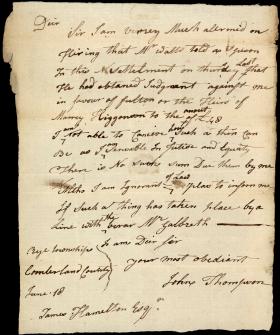 Deir
Sir I am verrey Much alermed on
Hiring that Mr Watts told a person
In this Netelment on thursday Last that
He had obtaned Judgmant against me
in favour of fulton or the Heirs of
Marrey Higgonson to the amount of £48
I am Not able to Conceve how Such a thin Can
Be as I am Senceable In Justice and Equety
There is No Such Sum Due them by me
Altho I am Ignorant of Law plas to inform me
If Such a thing has taken place by a
Line with the berar Mr Galbreth
I am Deir Sir
your most obedient
John Thompson
Rye township
Comberland County
June 18
James Hamelton Esqr